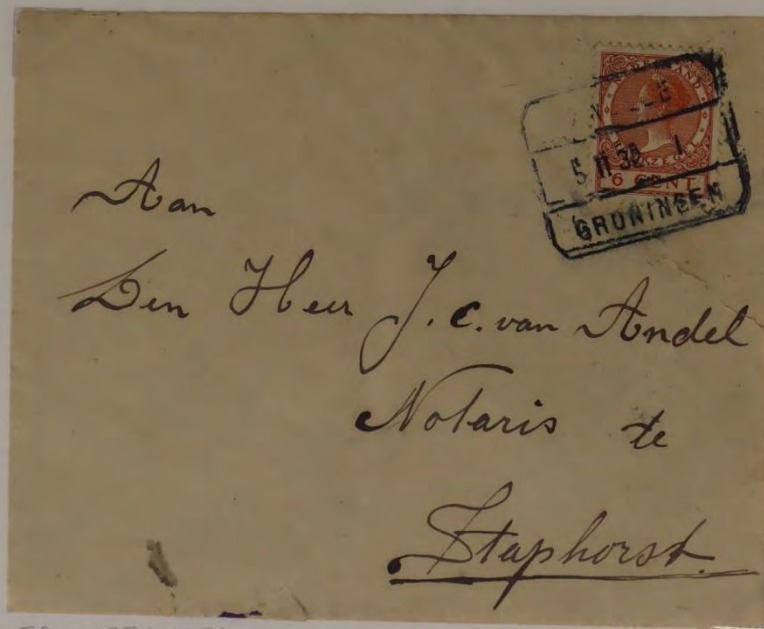 5 II 30 1
6 CENT
GRONINGEN
Aan
Den Heer J. C. van Andel
Notaris te
Staphorst.